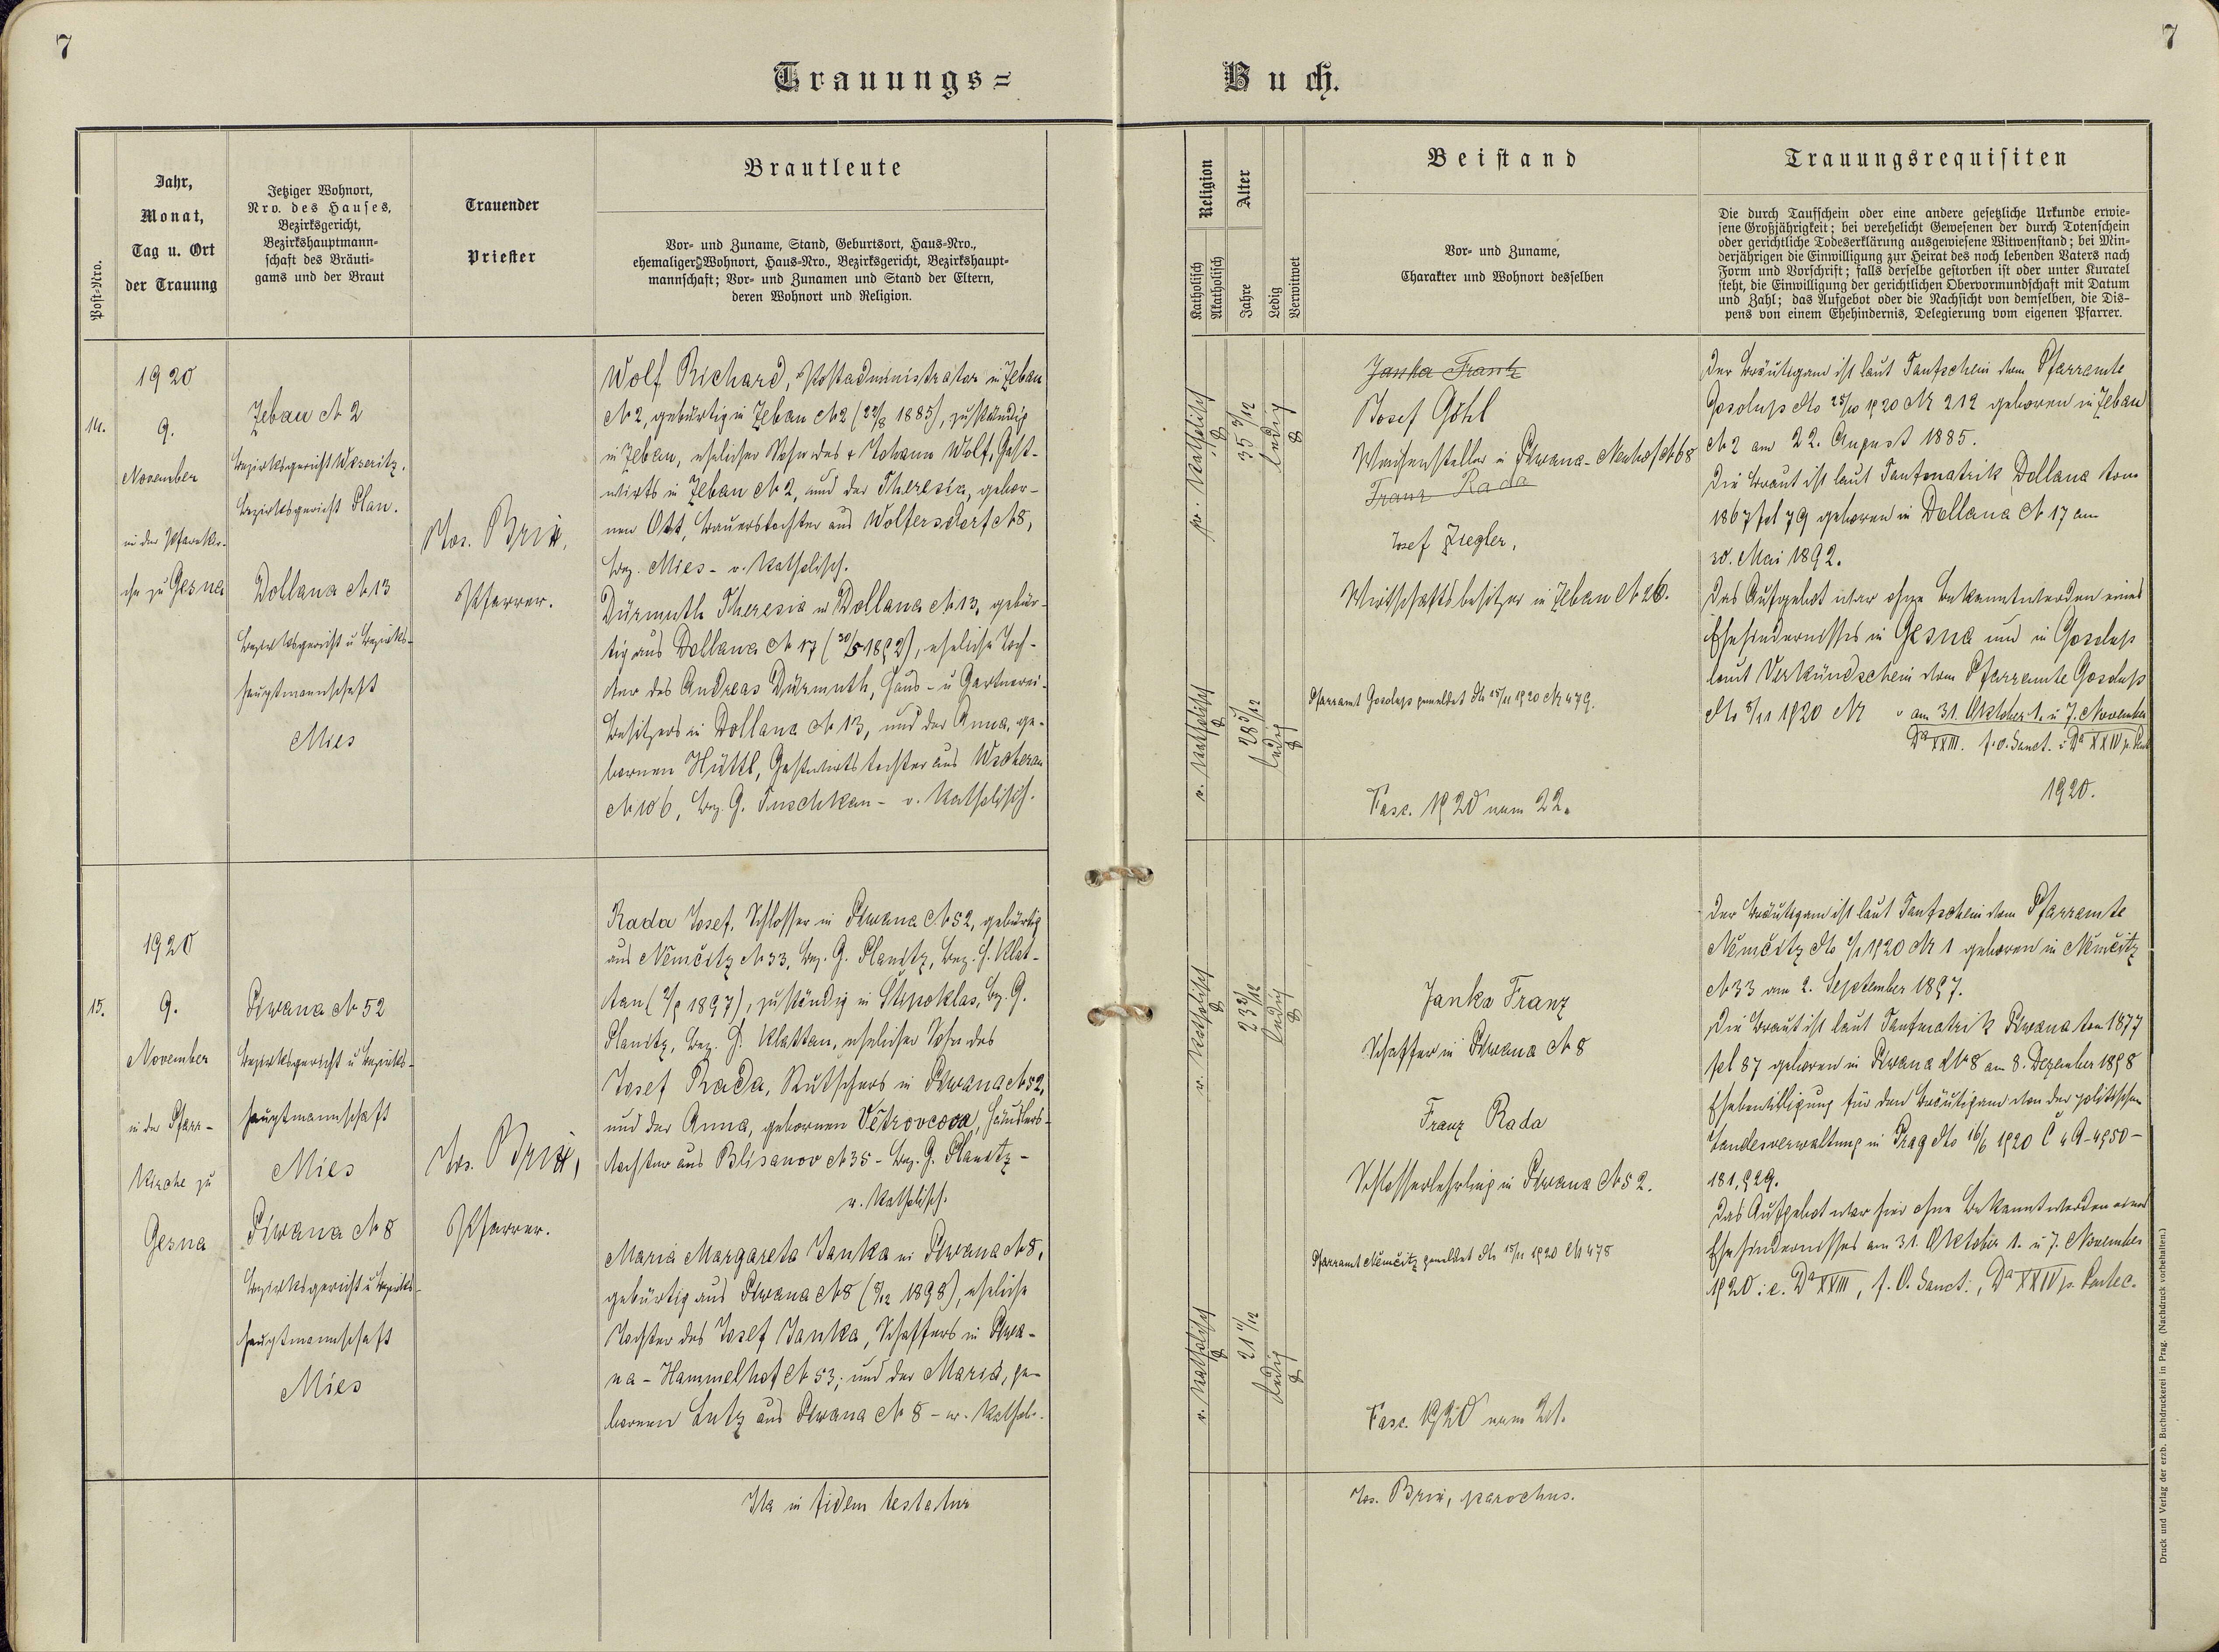 7
7
Trauungs=
Buch.
Post=Nro.
Jahr,
Monat,
Tag u. Ort
der Trauung
Jetziger Wohnort,
Nro. des Hauses,
Bezirksgericht,
Bezirkshauptmann=
schaft des Bräuti=
gams und der Braut
Trauender
Priester
Brautleute
Vor= und Zuname, Stand, Geburtsort, Haus=Nro.,
ehemaliger Wohnort, Haus=Nro., Bezirksgericht, Bezirkshaupt=
mannschaft; Vor= und Zunamen und Stand der Eltern,
deren Wohnort und Religion.
Religion
Katholisch
Akatholisch
Alter
Jahre
Ledig
Verwitwet
Beistand
Vor= und Zuname,
Charakter und Wohnort desselben
Trauungsrequisiten
Die durch Taufschein oder eine andere gesetzliche Urkunde erwie=
sene Großjährigkeit; bei verehelicht Gewesenen der durch Totenschein
oder gerichtliche Todeserklärung ausgewiesene Witwenstand; bei Min=
derjährigen die Einwilligung zur Heirat des noch lebenden Vaters nach
Form und Vorschrift; falls derselbe gestorben ist oder unter Kuratel
steht, die Einwilligung der gerichtlichen Obervormundschaft mit Datum
und Zahl; das Aufgebot oder die Nachsicht von demselben, die Dis=
pens von einem Ehehindernis, Delegierung vom eigenen Pfarrer.
14.
1920
9.
November
in der Pfarrkir-
che zu Gesna
Zebau № 2
Bezirksgericht Weseritz.
Bezirksgericht Plan.
Dollana № 13
Bezirksgericht u Bezirks-
hauptmannschaft
Mies
Jos. Brix,
Pfarrer.
Wolf Richard, Postadministrator in Zebau
№ 2, gebürtig in Zebau № 2 (22/8 1885), zuständig
in Zebau, ehelicher Sohn des + Johann Wolf, Gast-
wirts in Zebau № 2, und der Theresia, gebor-
nen Ott, Bauerstochter aus Wolfersdorf № 8,
Bez. Mies - r. Katholisch.
Dürmuth Theresia in Dollana № 13, gebür-
tig aus Dollana № 17 (30/5 1892), eheliche Toch-
ter des Andreas Dürmuth, Haus- u Gartnerei-
besitzers in Dollana № 13, und der Anna, ge-
bornen Hüttl, Gastwirtstochter aus Wscherau
№ 106, Bez. G. Tuschkau - r. Katholisch.
r. Katholisch
35 3/12
ledig
r. Katholisch
28 5/12
ledig
Janka Frank
Josef Göhl
in Piwana-Neuhof № 68
Franz Rada
Josef Ziegler,
Wirtschaftsbesitzer in Zebau № 26.
Pfarramt Gosolups gemeldet dto 15/11 1920 Nr 479.
Fasc. 1920 num 22.
Der Bräutigam ist laut Taufschein vom Pfarramte
Gosolups dto 25/10 1920 Nr 212 geboren in Zebau
№ 2 am 22. August 1885.
Die Braut ist laut Taufmatrik Dollana tom
1867 fol 79 geboren in Dollana № 17 am
30. Mai 1892.
Das Aufgebot war ohne Bekanntwerden eines
Ehehindernisses in Gesna und in Gosolups
laut Verkündschein vom Pfarramte Gosolups
dto 8/11 1920 Nr am 31. Oktober 1. u 7. November
Da XXIII. f. O. Sanct. u Da XXIV p. Pent
1920.
15.
1920
9.
November
in der Pfarr-
Kirche zu
Gesna
Piwana № 52
Bezirksgericht u Bezirks-
hauptmannschaft
Mies
Piwana № 8
Bezirksgericht u Bezirks-
hauptmannschaft
Mies
Jos. Brix,
Pfarrer.
Rada Josef, Schlosser in Piwana № 52, gebürtig
aus Němčitz № 33, Bez. G. Planitz, Bez. H. Klat-
tau (2/9 1897), zuständig in Stipoklas, Bz. G.
Planitz, Bez. H. Klattau, ehelicher Sohn des
Josef Rada, Kutschers in Piwana № 52,
und der Anna, gebornen Větrovcova, Häuslers-
tochter aus Blisanov № 35 - Bez. G. Planitz -
r. Katholisch.
Maria Margareta Janka in Piwana № 8,
gebürtig aus Piwana № 8 (8/12 1898), eheliche
Tochter des Josef Janka, Schaffers in Piwa-
na - Hammelhof № 53, und der Maria, ge-
bornen Lutz aus Piwana № 8 - r. Kathol.
r. Katholisch
23 2/12
ledig
r. Katholisch
21 11/12
ledig
Janka Franz
Schaffer in Piwana № 8
Franz Rada
Schlosserlehrling in Piwana № 52.
Pfarramt Němčitz gemeldet dto 15/11 1920 Nr 478
Fasc. 1920 num 21.
Der Bräutigam ist laut Taufschein vom Pfarramte
Němčitz dto 1920 Nr 1 geboren in Němčitz
№ 33 am 2. September 1897.
Die Braut ist laut Taufmatrik Piwana tom 1877
fol 87 geboren in Piwana № 8 am 8. Dezember 1898
Ehebewilligung für den Bräutigam von der politischen
Landesverwaltung in Prag dto 16/6 1920 Č 4 A-4950-
181,929.
Das Aufgebot war hier ohne Bekanntwerden eines
Ehehindernisses am 31. Oktober 1. u 7. November
1920 i.e. Da XXIII, f. O. Sanct., Da XXIV p. Pentec.
Ita in fidem testatur
Jos. Brix, parochus.
Druck und Verlag der erzb. Buchdruckerei in Prag. (Nachdruck vorbehalten.)